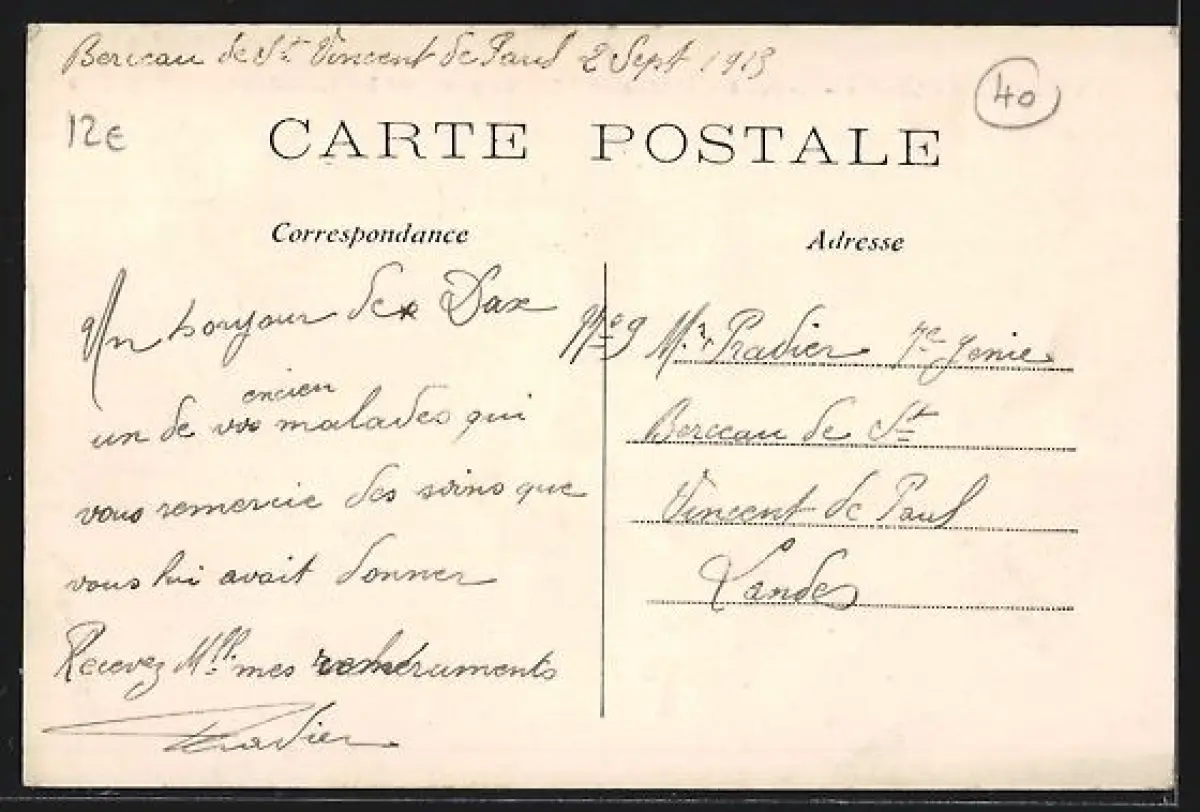 Berceau de St Vincent de Paul 2 Sept 1913
40
12€
CARTE POSTALE
Correspondance
Adresse
Un bonjour de Dax
un de vos encien malades qui
vous remercie des soins que
vous lui avait donner
Recevez Mlle mes
Pradier
Mr Pradier 7e Genie
Berceau de St
Vincent de Paul
Landes